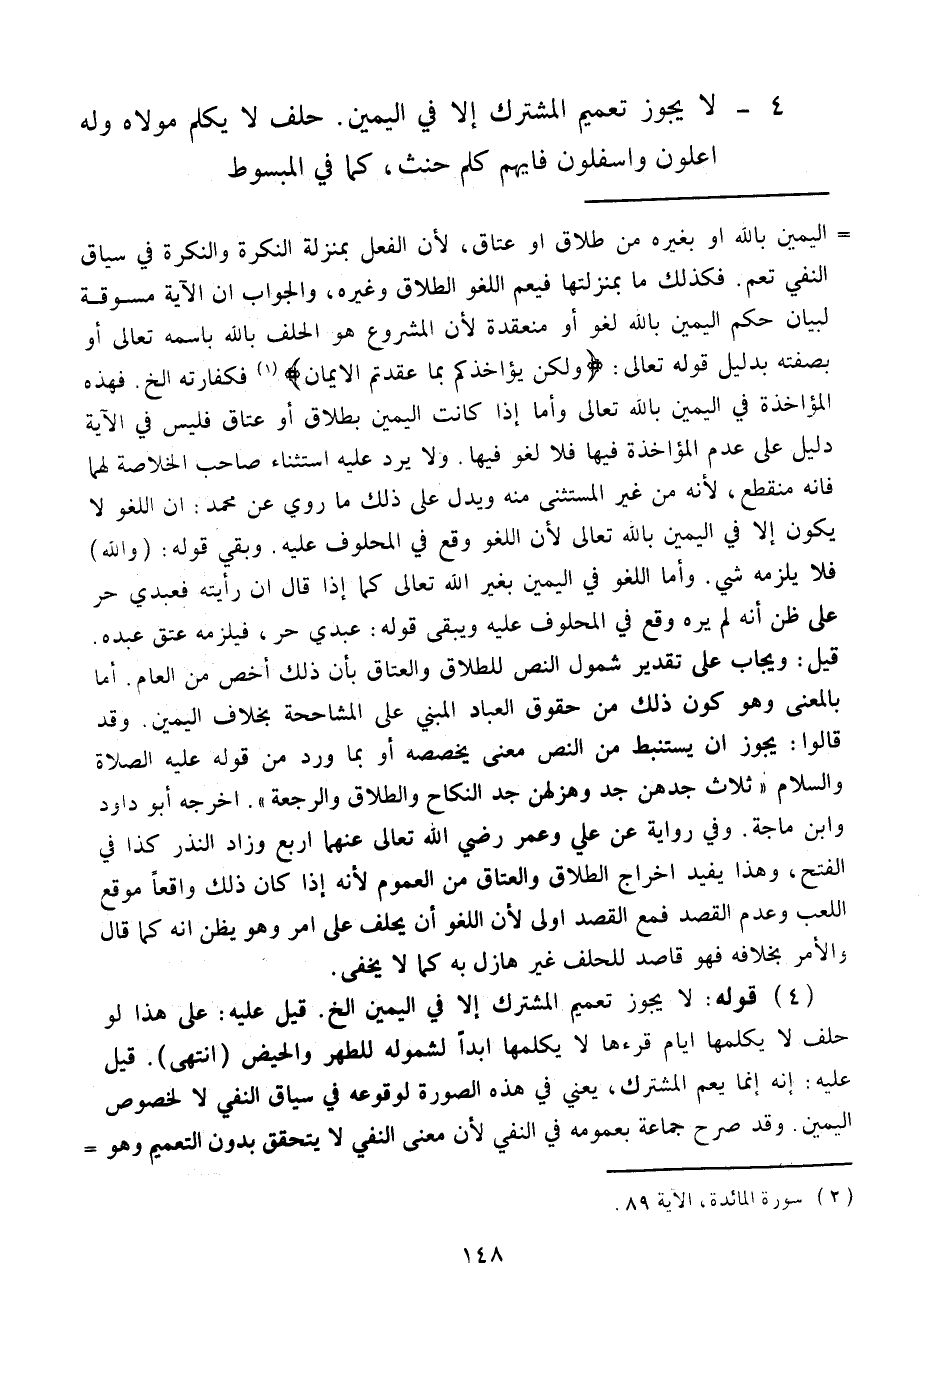 ٤ - لا يجوز تعميم المشترك إلا في اليمين. حلف لا يكلم مولاه وله
اعلون واسفلون فايهم كلم حنث، كما في المبسوط
= اليمين بالله او بغيره من طلاق او عتاق، لأن الفعل بمنزلة النكرة والنكرة في سياق
النفي تعم. فكذلك ما بمنزلتها فيعم اللغو الطلاق وغيره، والجواب ان الآية مسوقة
لبيان حكم اليمين بالله لغو أو منعقدة لأن المشروع هو الحلف بالله باسمه تعالى أو
بصفته بدليل قوله تعالى: ﴿ولكن يؤاخذكم بما عقدتم الايمان﴾ (١) فكفارته الخ. فهذه
المؤاخذة في اليمين بالله تعالى وأما إذا كانت اليمين بطلاق أو عتاق فليس في الآية
دليل على عدم المؤاخذة فيها فلا لغو فيها. ولا يرد عليه استثناء صاحب الخلاصة لهما
فانه منقطع، لأنه من غير المستثنى منه ويدل على ذلك ما روي عن محمد: ان اللغو لا
يكون إلا في اليمين بالله تعالى لأن اللغو وقع في المحلوف عليه. وبقي قوله: (والله)
فلا يلزمه شي. وأما اللغو في اليمين بغير الله تعالى كما إذا قال ان رأيته فعبدي حر
على ظن أنه لم يره وقع في المحلوف عليه ويبقى قوله: عبدي حر، فيلزمه عتق عبده.
قيل: ويجاب على تقدير شمول النص للطلاق والعتاق بأن ذلك أخص من العام. أما
بالمعنى وهو كون ذلك من حقوق العباد المبني على المشاححة بخلاف اليمين. وقد
قالوا: يجوز ان يستنبط من النص معنى يخصصه أو بما ورد من قوله عليه الصلاة
والسلام «ثلاث جدهن جد وهزلهن جد النكاح والطلاق والرجعة». اخرجه أبو داود
وابن ماجة. وفي رواية عن علي وعمر رضي الله تعالى عنهما اربع وزاد النذر كذا في
الفتح، وهذا يفيد اخراج الطلاق والعتاق من العموم لأنه إذا كان ذلك واقعاً موقع
اللعب وعدم القصد فمع القصد اولى لأن اللغو أن يحلف على امر وهو يظن انه كما قال
والأمر بخلافه فهو قاصد للحلف غير هازل به كما لا يخفى.
(٤) قوله: لا يجوز تعميم المشترك إلا في اليمين الخ. قيل عليه: على هذا لو
حلف لا يكلمها ايام قرءها لا يكلمها ابداً لشموله للطهر والحيض (انتهى). قيل
عليه: إنه إنما يعم المشترك، يعني في هذه الصورة لوقوعه في سياق النفي لا لخصوص
اليمين. وقد صرح جماعة بعمومه في النفي لأن معنى النفي لا يتحقق بدون التعميم وهو =
(٢) سورة المائدة، الآية ٨٩.
١٤٨